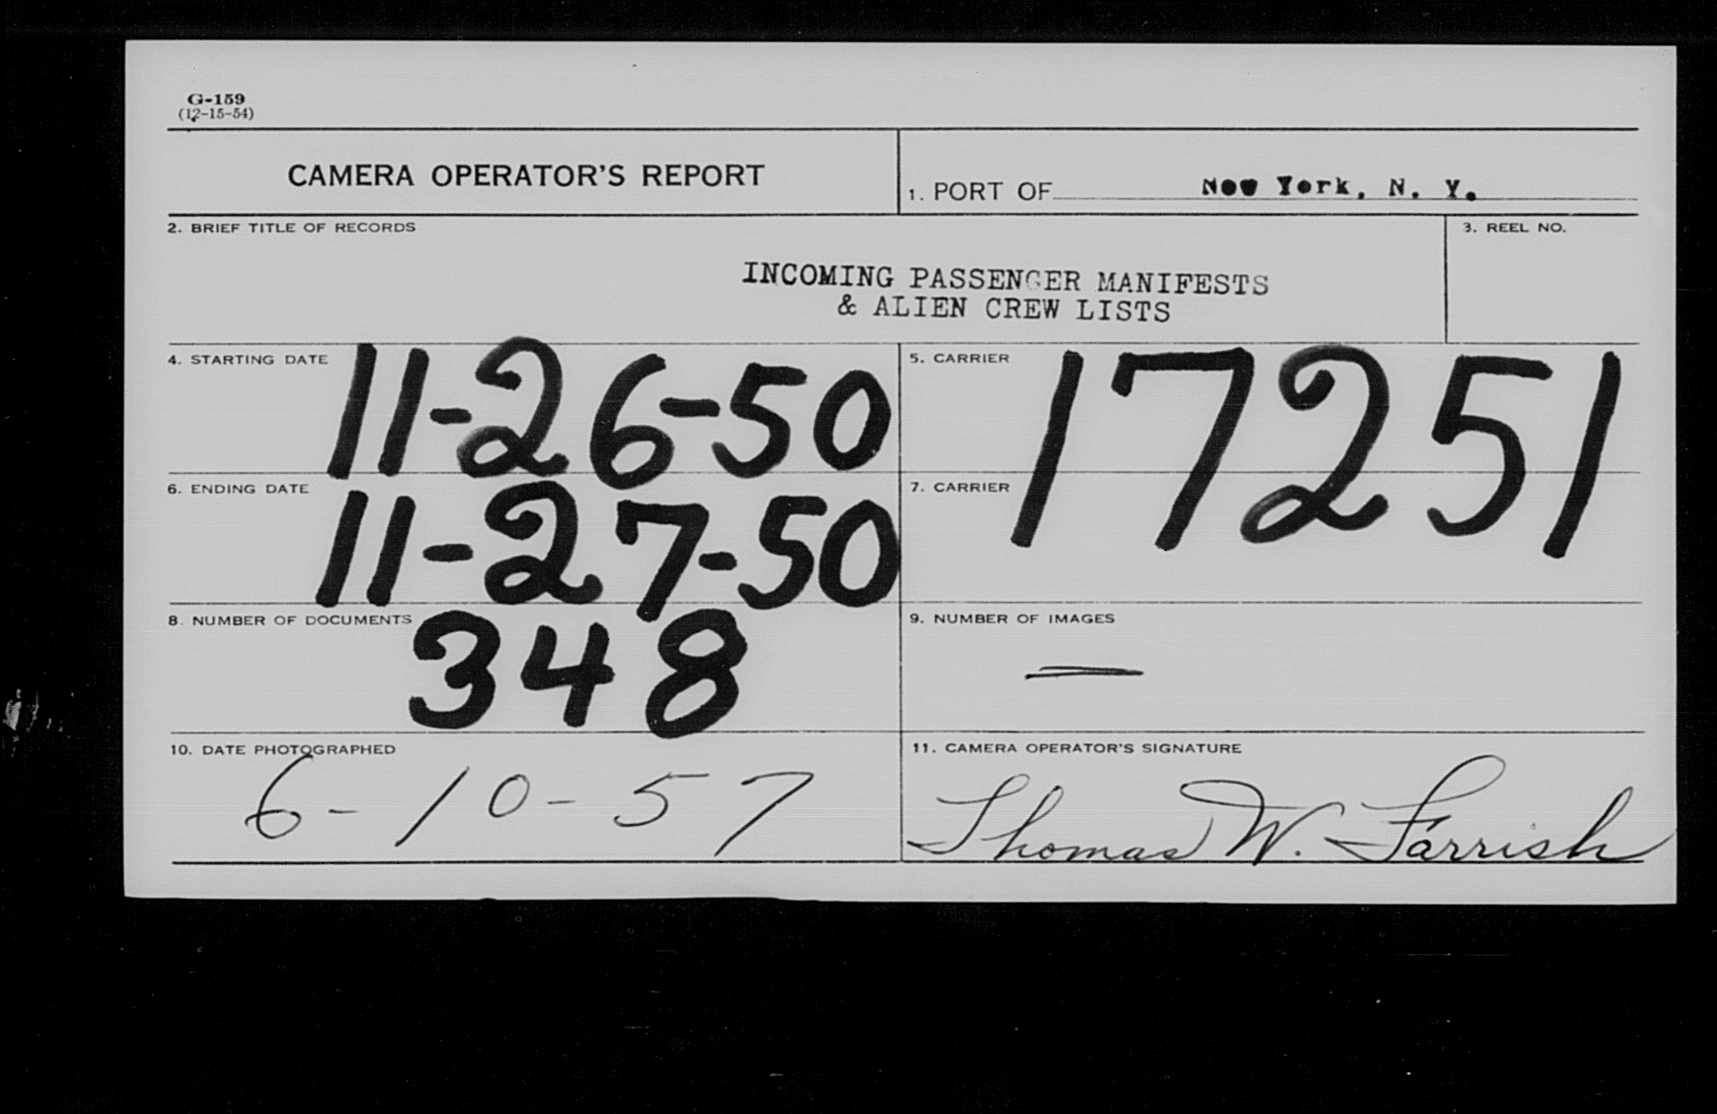 G-159
(12-15-54)
CAMERA OPERATOR'S REPORT
1. PORT OF New York, N. Y.
2. BRIEF TITLE OF RECORDS
3. REEL NO.
INCOMING PASSENGER MANIFESTS
& ALIEN CREW LISTS
4. STARTING DATE 11-26-50
5. CARRIER 17251
6. ENDING DATE 11-27-50
7. CARRIER
8. NUMBER OF DOCUMENTS 348
9. NUMBER OF IMAGES —
10. DATE PHOTOGRAPHED
6-10-57
11. CAMERA OPERATOR'S SIGNATURE
Thomas W. Farrish